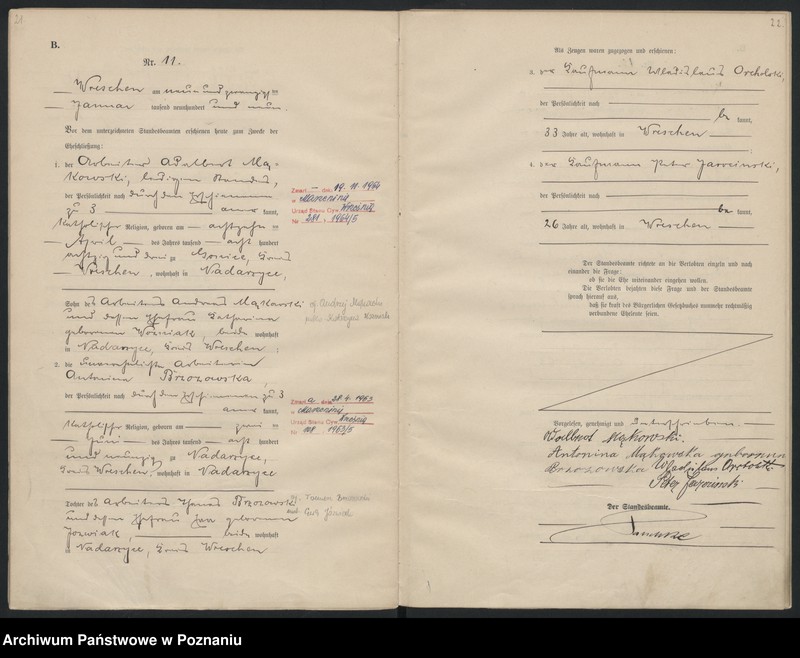 21
B.
Nr. 11.
Wreschen am neun und zwanzigsten
Januar tausend neunhundert und neun.
Vor dem unterzeichneten Standesbeamten erschienen heute zum Zwecke der
Eheschließung:
1. der Arbeiter Adalbert Mą-
kowski, ledigen Standes,
der Persönlichkeit nach durch den
zu 3 anerkannt,
katholischer Religion, geboren am achtzehnten
April des Jahres tausend acht hundert
achtzig und drei zu Gonice, Kreis
Wreschen, wohnhaft in Nadarzyce,
Sohn des Arbeiters Andreas Mąkowski
und dessen Ehefrau Catharina
geborenen Woźniak, beide wohnhaft
in Nadarzyce, Kreis Wreschen;
2. die unverehelichte Arbeiterin
Antonina Brzozowska,
der Persönlichkeit nach durch den zu 3
anerkannt,
katholischer Religion, geboren am
Juni des Jahres tausend acht hundert
und neunzig zu Nadarzyce,
Kreis Wreschen, wohnhaft in Nadarzyce
Tochter des Arbeiters Thomas Brzozowski
und dessen Ehefrau Eva geborenen
Jozwiak, beide wohnhaft
in Nadarzyce, Kreis Wreschen
Zmarł dnia 19. 11. 1964
w Marzenin
Urząd Stanu Cyw. Września
Nr 281, 1964/5
Zmarł a dnia 28. 4. 1963
w Marzenin
Urząd Stanu Cyw. Września
Nr 108 1963/5
22.
Als Zeugen waren zugezogen und erschienen:
3. der Kaufmann Wladislaus Orcholski,
der Persönlichkeit nach
bekannt,
33 Jahre alt, wohnhaft in Wreschen
4. der Kaufmann Peter Jarocinski,
der Persönlichkeit nach
bekannt,
26 Jahre alt, wohnhaft in Wreschen
Der Standesbeamte richtete an die Verlobten einzeln und nach
einander die Frage:
ob sie die Ehe miteinander eingehen wollen.
Die Verlobten bejahten diese Frage und der Standesbeamte
sprach hierauf aus,
daß sie kraft des Bürgerlichen Gesetzbuchs nunmehr rechtmäßig
verbundene Eheleute seien.
Vorgelesen, genehmigt und unterschrieben.
Mąkowski.
Antonina Mąkowska geborene
Brzozowska Wladislaus Orcholski
Peter Jarocinski
Der Standesbeamte.
Archiwum Państwowe w Poznaniu